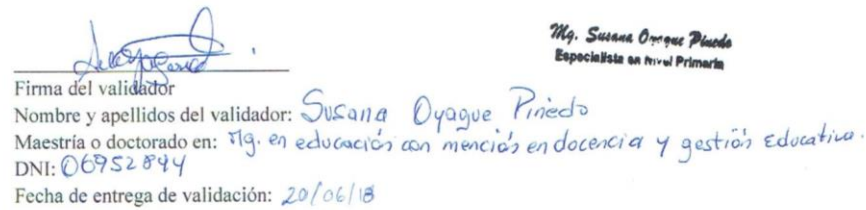 Mg. Susana Oyague Pinedo
Especialista en Nivel Primaria
Firma del validador
Nombre y apellidos del validador: Susana Oyague Pinedo
Maestría o doctorado en: Mg. en educación con mención en docencia y gestión Educativa.
DNI: 06952844
Fecha de entrega de validación: 20/06/18